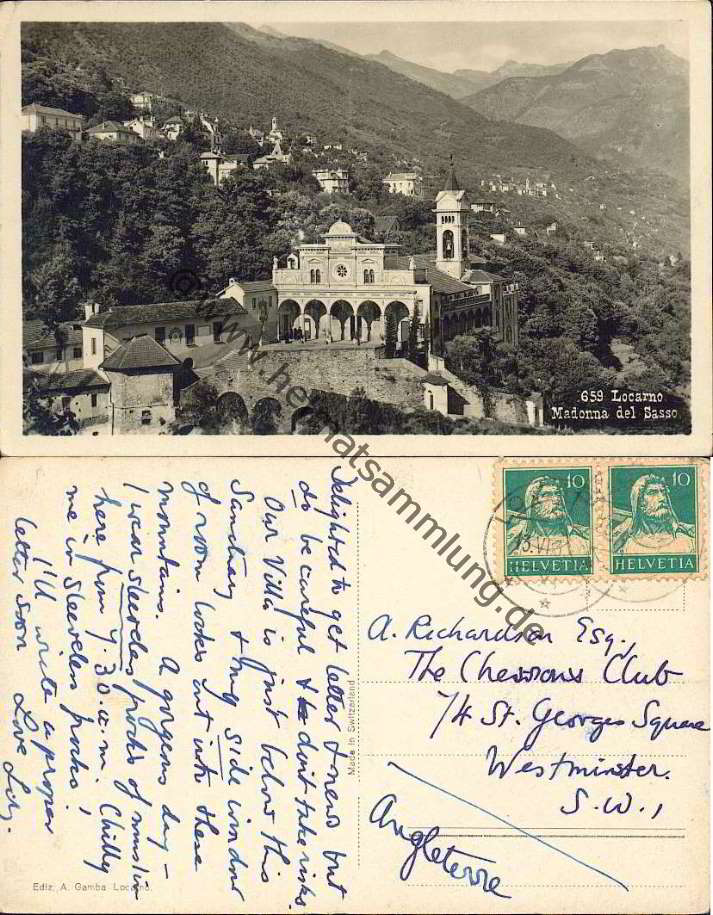 659 Locarno
Madonna del Sasso
© www.heimatsammlung.de
Delighted to get letter & news but
do be careful & don't take risks.
Our Villa is just below this
Sanctuary & my side window
of room looks out into these
mountains. A gorgeous day –
I wear sleeveless frocks of muslin
here from 9.30.a.m. Chilly
me in sleeveless frocks!
I'll write a proper
letter soon Love
Made in Switzerland
10
HELVETIA
10
HELVETIA
A. Richardson Esq.,
The Club
74 St. Georges Square
Westminster.
S.W.1
Angleterre
Ediz. A. Gamba. Locarno.